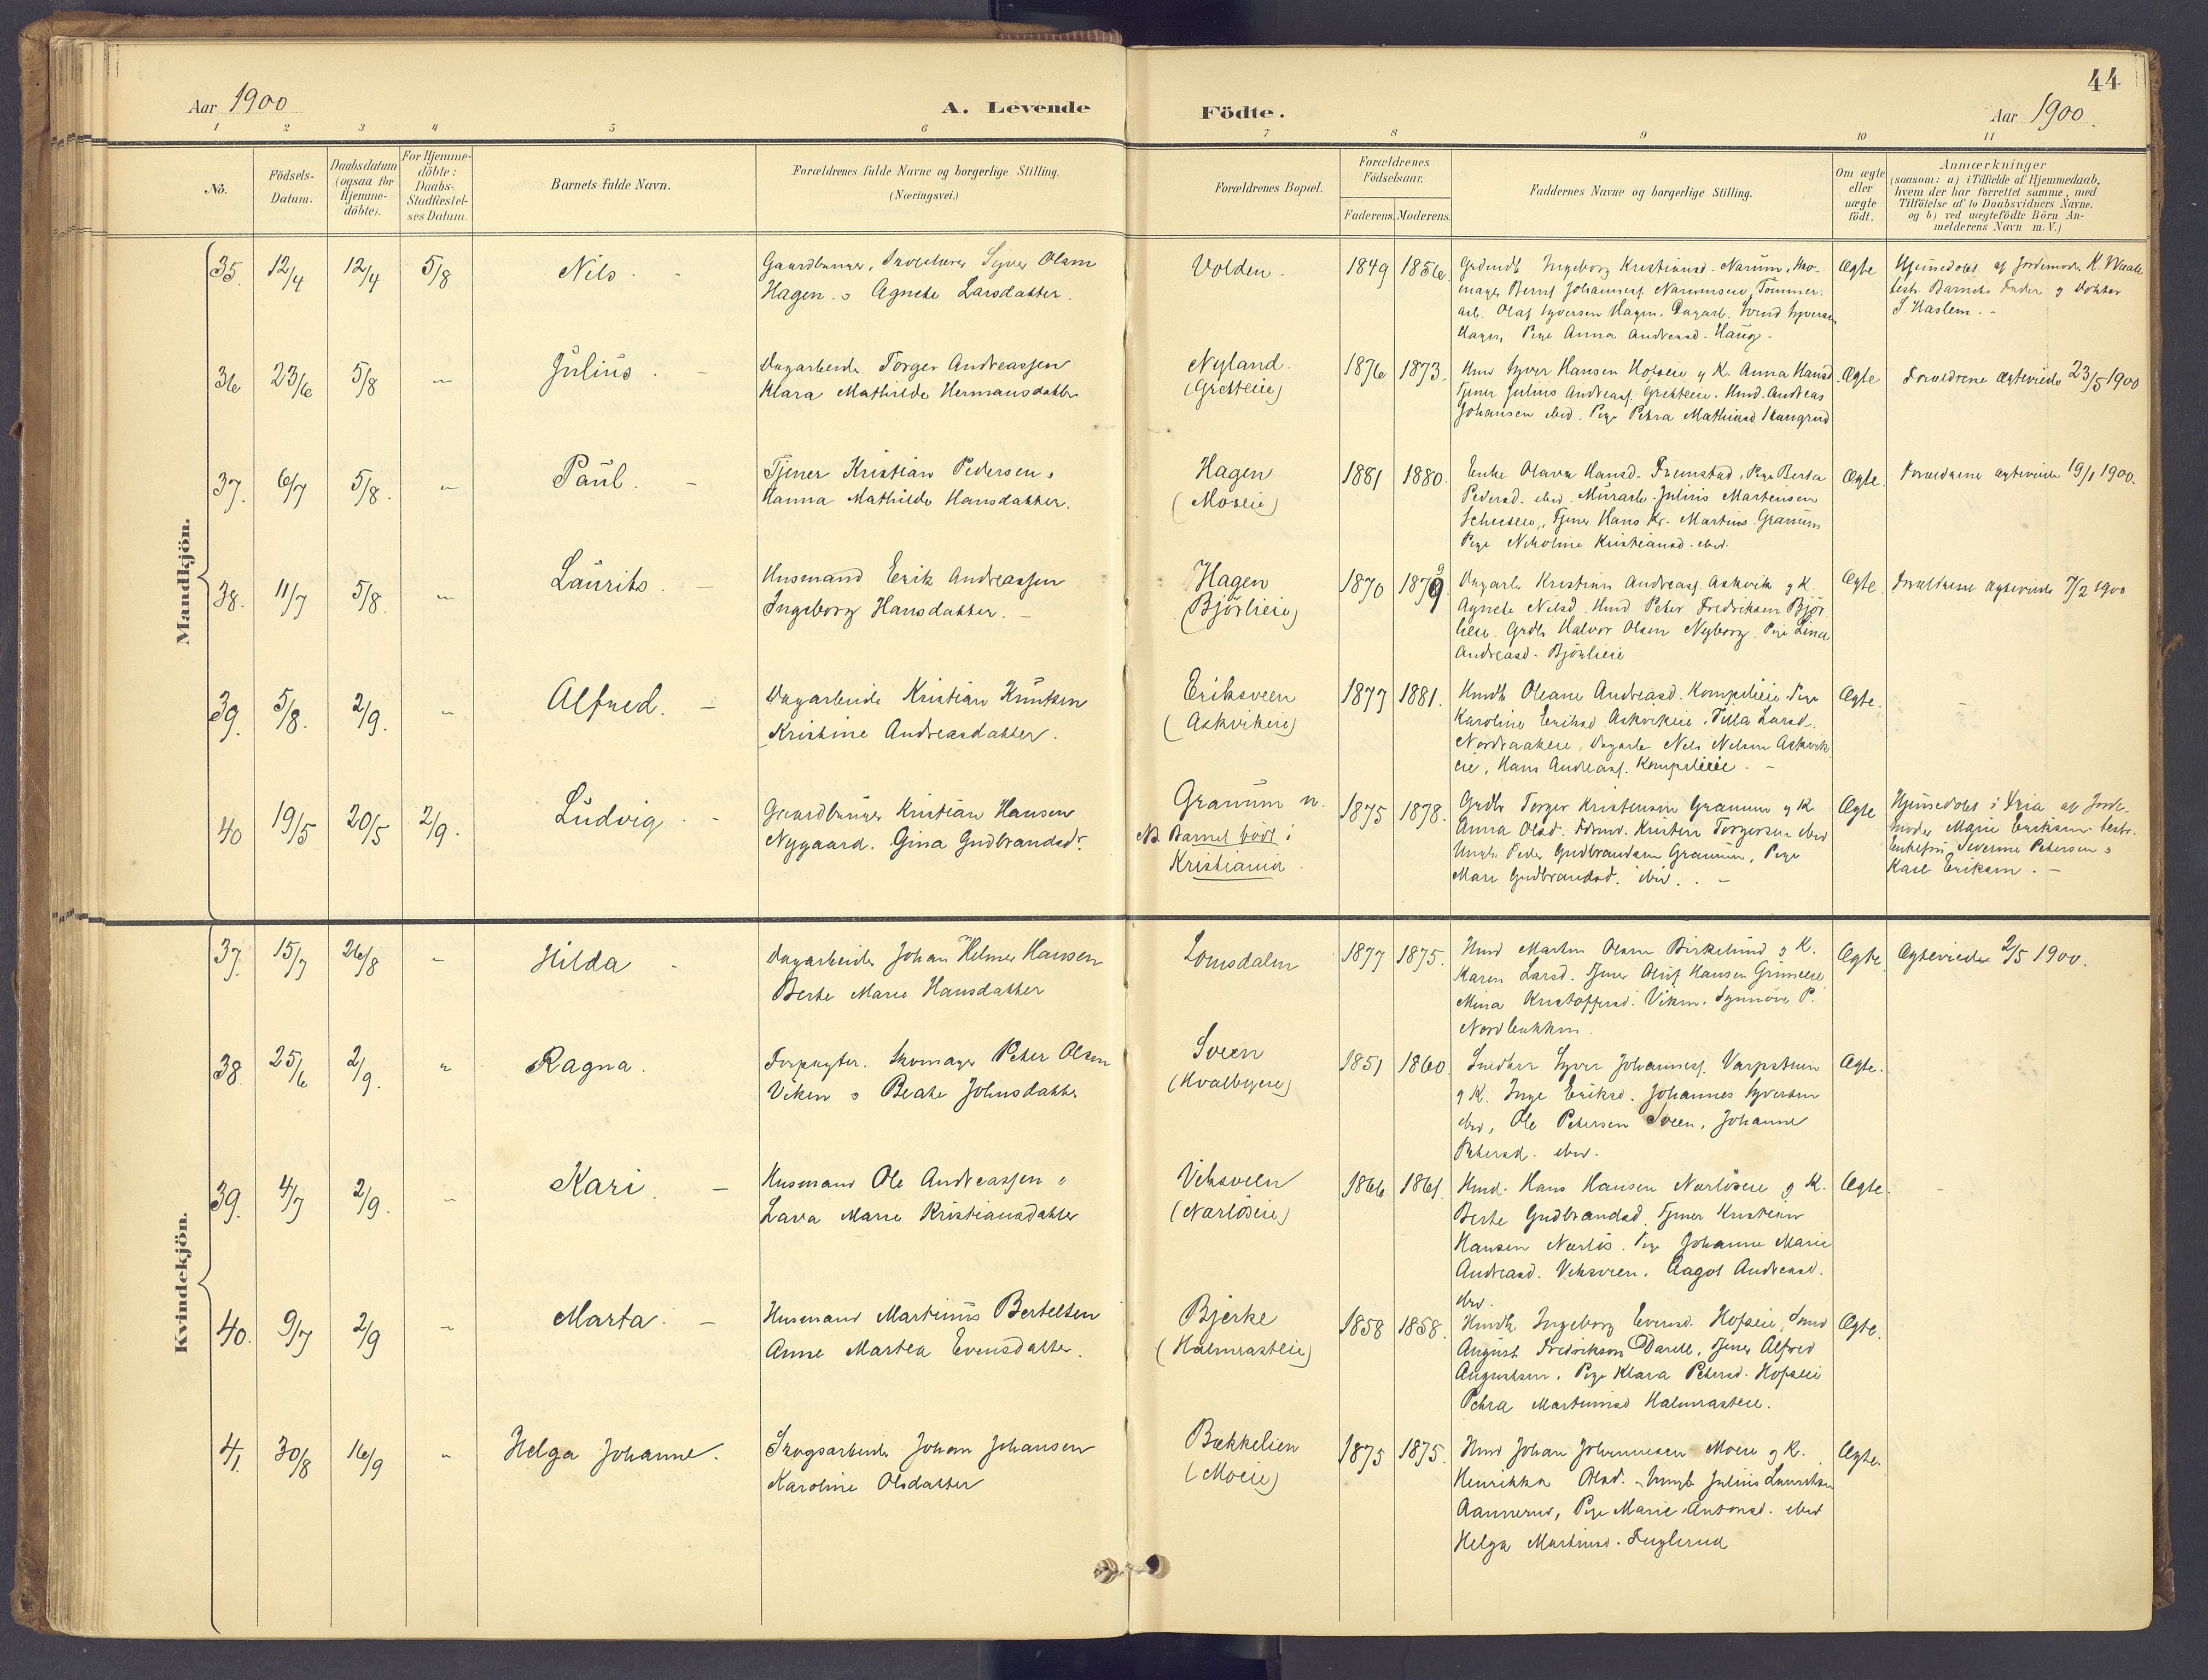 44
Aar 1900
A. Levende
Födte.
Aar 1900.
1 2 3 4 5 6 7 8 9 10 11
Nö.
Födsels-
Datum.
Daabsdatum
(ogsaa for
Hjemme-
döbte).
For Hjemme-
döbte:
Daabs-
Stadfæstel-
ses Datum.
Barnets fulde Navn.
Forældrenes fulde Navne og borgerlige Stilling.
(Næringsvei.)
Forældrenes Bopæl.
Forældrenes
Födselsaar.
Faderens. Moderens.
Faddernes Navne og borgerlige Stilling.
Om ægte
eller
uægte
födt.
Anmærkninger
(saasom: a) i Tilfælde af Hjemmedaab,
hvem der har forrettet samme, med
Tilföielse af to Daabsvidners Navne.
og b) ved uægtefödte Börn An-
melderens Navn m.V.)
Mandkjön.
35. 12/4 12/4 5/8 Nils. -
Gaardbruger, Syver Olsen
Hagen. o Agnethe Larsdatter.
Volden. 1849 1856.
Ingeborg Kristiansd. Narum,
mager Bernt Johannesf. Narumseie, Tömmer-
arb. Olaf Syversen Hagen. Dagarb. Syversen
Hagen, Pige Anna Andreasd. Haug.
Ægte
Hjemmedöbt af Jordemoder K. Waale
test. Barnets Fader og Doktor
S. Haslem. -
36 23/6 5/8 " Julius. -
Dagarbeider Torger Andreassen
Klara Mathilde Hermansdatter
Nyland.
(Gretteie)
1876 1873.
Hmd Syver Hansen Hofseie og K. Anna Hansd.
Tjener Julius Andreasf. Gretteie. Hmd. Andreas
Johansen ibid. Pige Petra Mathiasd
Ægte
Forældrene Ægteviede 23/5 1900
37. 6/7 5/8. " Paul. -
Tjener Kristian Pedersen o
Hanna Mathilde Hansdatter.
Hagen
(Moseie)
1881 1880.
Enke Olava Hansd. Fremstad, Pige Berta
Pedersd. ibid. Murarb. Julius Martensen
Tjener Hans Kr. Martins. Granum
Pige Nikoline Kristiansd. ibid.
Ægte.
Forældrene Ægteviede 19/1 1900.
38. 11/7 5/8. " Laurits. -
Husmand Erik Andreassen
Ingeborg Hansdatter. -
Hagen
(Björlieie)
1870 1879.
Dagarb. Kristian Andreasf. Askvik og K.
Agnete Nilsd. Hmd Peter Fredriksen Björ
lieie. Grdb. Halvor Olsen Nyborg. Pige Lina
Andreasd. Björlieie
Ægte.
Forældrene Ægteviede 7/2 1900
39. 5/8. 2/9. " Alfred. -
Dagarbeider Kristian Knutsen
Kristine Andreasdatter.
Eriksveen
(Askvikeie)
1877 1881.
Oleane Andreasd. Kompelieie, Pige
Karoline Eriksd Askvikeie. Tilla Larsd.
Nordraakeie, Dagarb. Nils Nilsen Askvik
eie, Hans Andreasf. Kompelieie. -
Ægte.
-
40 19/5 20/5 2/9. Ludvig. -
Gaardbruger Kristian Hansen
Nygaard. Gina Gudbrandsdr.
Granum n.
NB. Barnet födt i
Kristiania.
1875 1878.
Grdbr Torger Kristensen Granum og K.
Anna Olsd. Kristen Torgersen ibid
Ungk. Peder Gudbrandsen Granum, Pige
Mari Gudbrandsd. ibid. . -
Ægte
Hjemmedöbt i Xria af Jorde-
moder Marie Eriksen. test.
Enkefru Severine Petersen o
Karl Eriksen. -
Kvindekjön.
37. 15/7 26/8 " Hilda -
Dagarbeider Johan Helmer Hansen
Berte Marie Hansdatter
Lomsdalen 1877 1875.
Hmd Martin Olsen Birkelund og K.
Karen Larsd. Tjener Oluf Hansen
Mina Kristoffersd. Viken. Synnöve P.
Ægte.
Ægteviede 2/5 1900.
38. 25/6 2/9. " Ragna.
Forpagter. Skomager Peter Olsen
Viken o Beate Johnsdatter
Sveen
(Hvalbyeie)
1851 1860.
Snedker Syver Johannesf. Varpstuen
og K. Inge Eriksd. Johannes Syversen
ibid, Ole Petersen Sveen, Johanne
Petersd. ibid.
Ægte.
39. 4/7 2/9. " Kari. -
Husmand Ole Andreassen o
Lava Marie Kristiansdatter
Viksveen
(Narlöseie)
1866 1861.
Hmd. Hans Hansen Narlöseie og K.
Berte Gudbrandsd. Tjener Kristian
Hansen Narlös. Pige Johanne Marie
Andreasd. Viksveen. Aagot Andreasd.
ibid.
Ægte.
-
40. 9/7 2/9 " Marta. -
Husmand Martinus Bertelsen
Anne Martea Evensdatter.
Bjerke
(Halmrasteie)
1858 1858.
Ingeborg Evensd. Hofseie, Smed
August Fredrikson Darell. Tjener Alfred
Augustsen. Pige Klara Petersd. Hofseie
Petra Martinusd Halmrasteie.
Ægte.
41. 30/8 16/9 " Helga Johanne.
Skogsarbeider Johan Johansen
Karoline Olsdatter
Bækkelien
(Moeie)
1875 1875.
Hmd Johan Johannesen Moeie og K.
Henrikka Olsd. Ungk. Julius Lauritsen
Aannerud, Pige Marie Antonsd. ibid
Helga Martinsd. Fuglerud
Ægte.